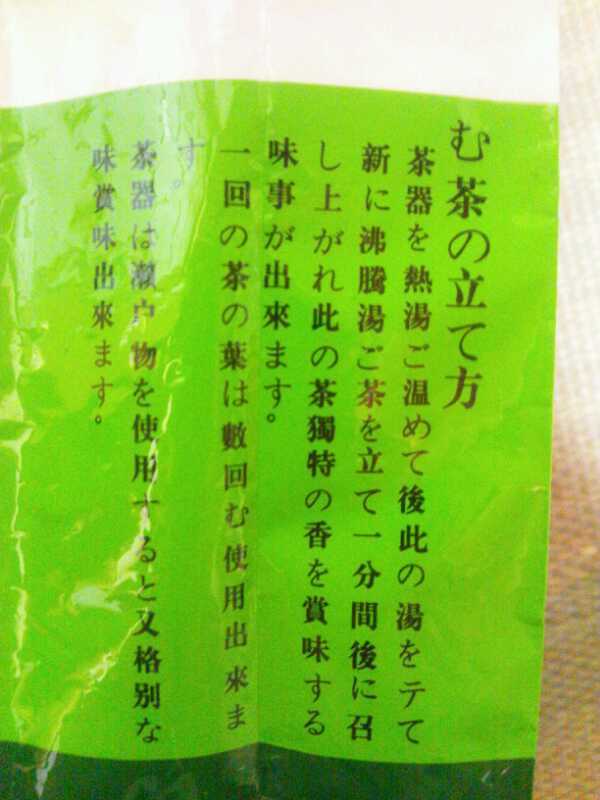 む茶の立て方
茶器を熱湯ご温めて後此の湯をテて
新に沸騰湯ご茶を立て一分間後に召
し上がれ此の茶獨特の香を賞味する
味事が出來ます。
一回の茶の葉は數回む使用出來ま
す。
茶器は瀬户物を使用すると又格別な
味賞味出來ます。